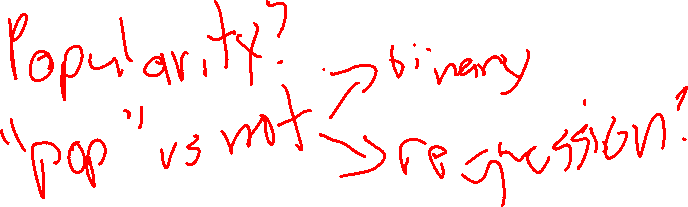 Popularity?
"pop" vs not → binary
→ regression?